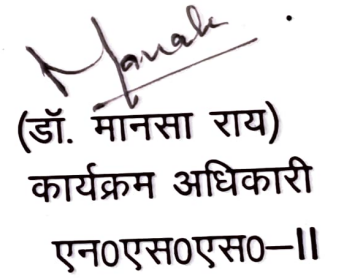 (डॉ. मानसा राय)
कार्यक्रम अधिकारी
एन0एस0एस0–II